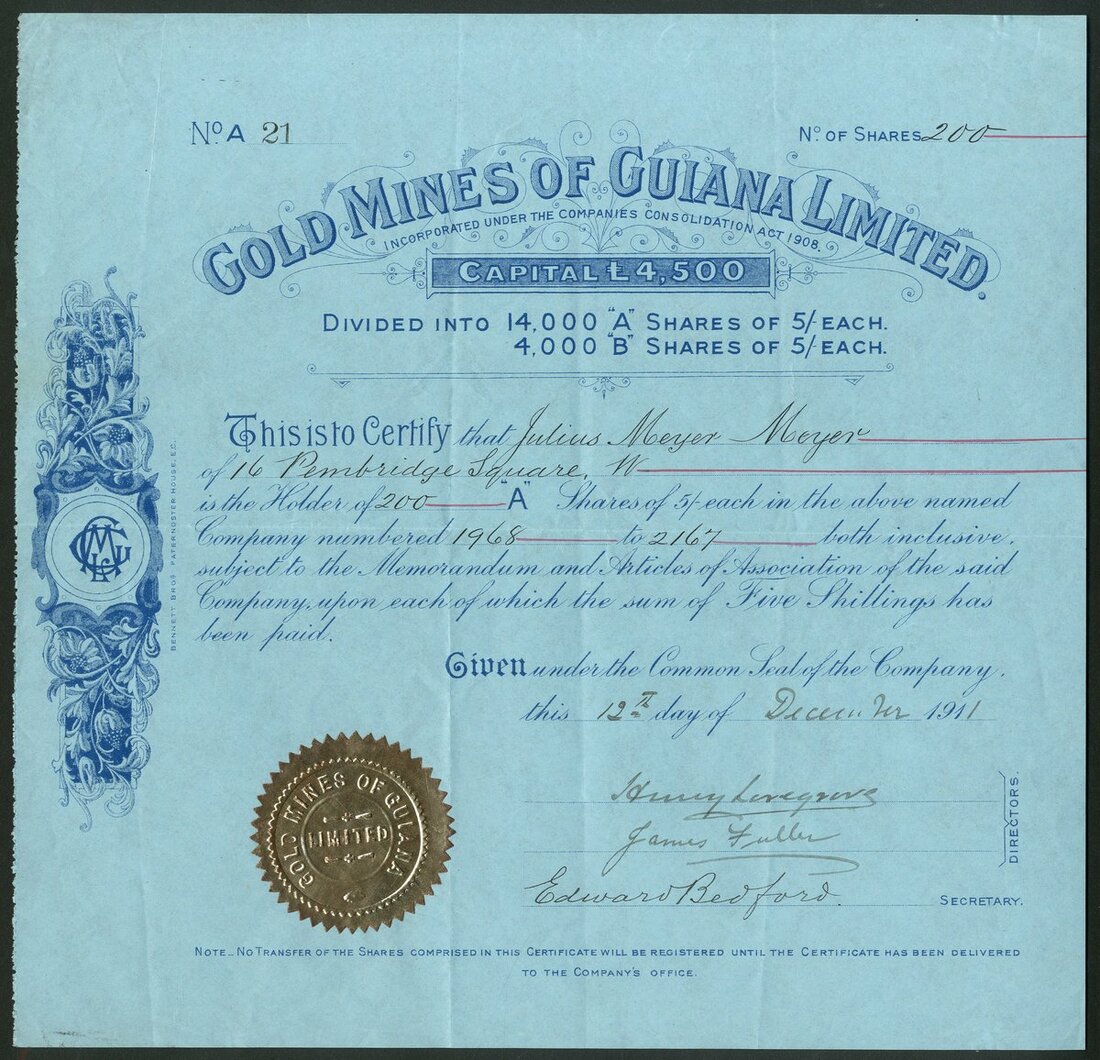 No. A 21
No. OF SHARES 200
GOLD MINES OF GUIANA LIMITED.
INCORPORATED UNDER THE COMPANIES CONSOLIDATION ACT 1908.
CAPITAL £4,500
DIVIDED INTO 14,000 "A" SHARES OF 5/- EACH.
4,000 "B" SHARES OF 5/- EACH.
This is to Certify that Julius Meyer Meyer
of 16 Pembridge Square, W
is the Holder of 200 "A" Shares of 5/- each in the above named
Company numbered 1968 to 2167 both inclusive,
subject to the Memorandum and Articles of Association of the said
Company, upon each of which the sum of Five Shillings has
been paid.
Given under the Common Seal of the Company,
this 12th day of December 1911
Henry Lovegrove
James Fuller
DIRECTORS.
Edward Bedford.
SECRETARY.
GOLD MINES OF GUIANA
LIMITED
NOTE_ NO TRANSFER OF THE SHARES COMPRISED IN THIS CERTIFICATE WILL BE REGISTERED UNTIL THE CERTIFICATE HAS BEEN DELIVERED
TO THE COMPANY'S OFFICE.
BENNETT BROS PATERNOSTER HOUSE, E.C.